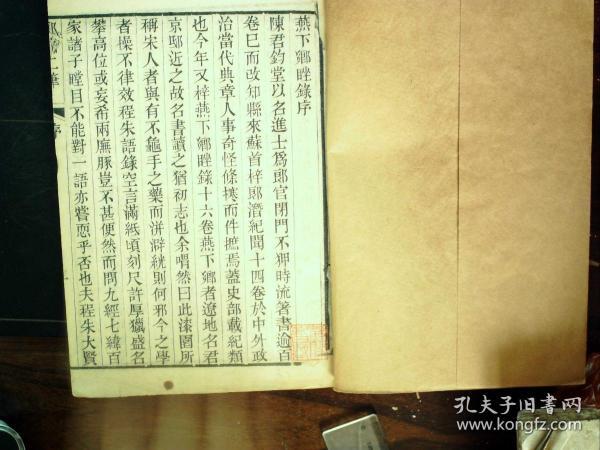 燕下鄉脞錄序
陳君鈞堂以名進士爲郎官閉門不狎時流著書逾百
卷已而改知縣來蘇首梓郎潛紀聞十四卷於中外政
治當代典章人事奇怪條摭而件摭焉蓋史部載紀類
也今年又梓燕下鄉脞錄十六卷燕下鄉者遼地名君
京邸近之故名書讀之猶初志也余喟然曰此漆園所
稱宋人者與有不龜手之藥而洴澼絖則何邪今之學
者操不律效程朱語錄空言滿紙頃刻尺許厚獵盛名
攀高位或妄希兩廡豚豈不甚便然而問九經七緯百
家諸子瞠目不能對一語亦嘗恧乎否也夫程朱大賢
二筆
序
孔夫子旧书网
www.kongfz.com